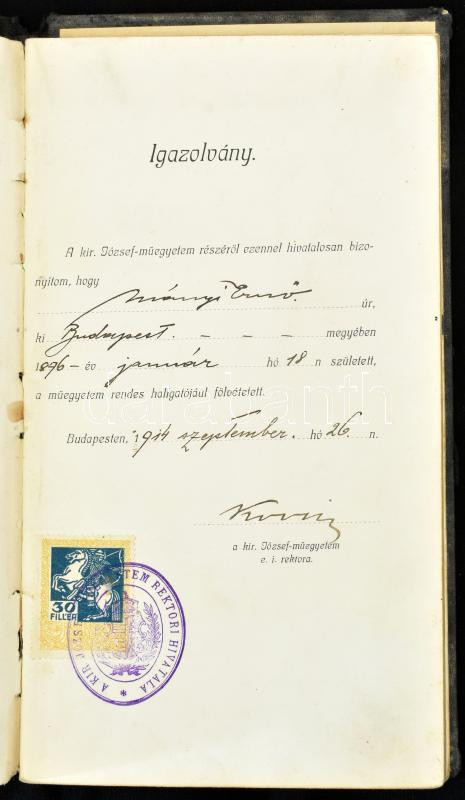 Igazolvány.
A kir. József-műegyetem részéről ezennel hivatalosan bizo-
nyítom, hogy
Ernő. úr,
ki Budapest. – – – megyében
1896 – év január hó 18 n született,
a műegyetem rendes hallgatójául fölvétetett.
Budapesten, 1914 szeptember. hó 26. n.
a kir. József-műegyetem
e. i. rektora.
30
FILLÉR
A KIR. JÓZSEF MŰEGYETEM REKTORI HIVATALA
darabanth